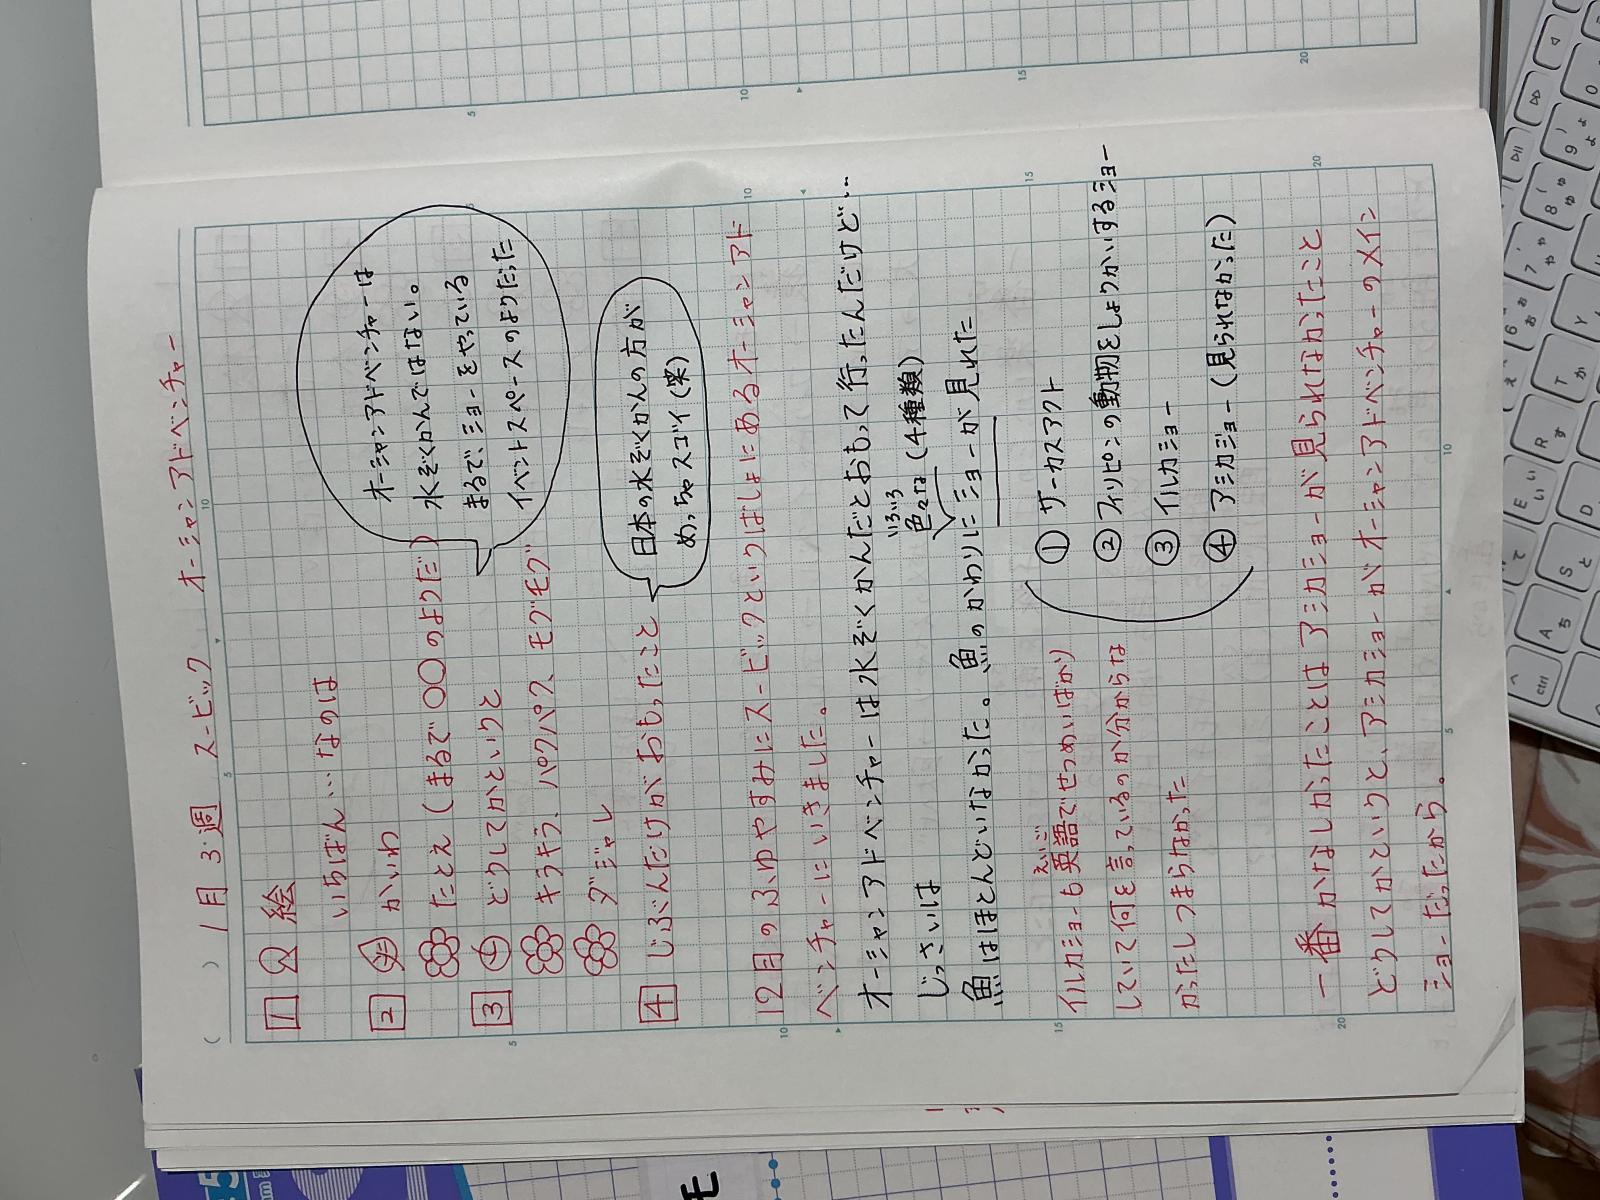 ( ) 1月3週 スービック オーシャンアドベンチャー
1 絵
いちばん…なのは
2 かいわ
たとえ（まるで〇〇のようだ）
3 どうしてかというと
キラキラ、パクパク、モグモグ
ダジャレ
4 じぶんだけがおもったこと
オーシャンアドベンチャーは
水ぞくかんではない。
まるで、ショーをやっている
イベントスペースのようだった
日本の水ぞくかんの方が
めっちゃスゴイ(笑)
12月のふゆやすみにスービックというばしょにあるオーシャンアド
ベンチャーにいきました。
オーシャンアドベンチャーは水ぞくかんだとおもって行ったんだけど…
じっさいは
いろいろ
色々な(4種類)
魚はほとんどいなかった。魚のかわりにショーが見れた
① サーカスアクト
② フィリピンの動物をしょうかいするショー
③ イルカショー
④ アシカショー(見られなかった)
えいご
イルカショーも英語でせつめいばかり
していて何を言っているのか分からな
かったしつまらなかった
一番かなしかったことはアシカショーが見られなかったこと
どうしてかというと、アシカショーがオーシャンアドベンチャーのメイン
ショーだったから。